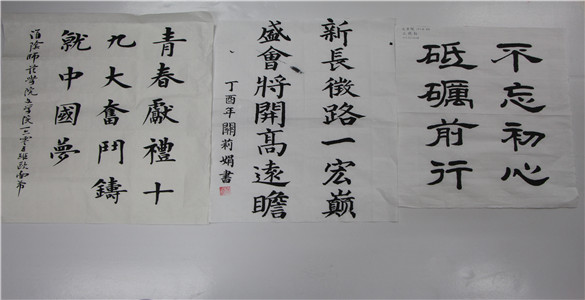 青春獻禮十
九大奮鬥鑄
就中國夢
淮陰師範學院文學院
新長徵路一宏巔
盛會將開高遠瞻
丁酉年關莉娟書
不忘初心
砥礪前行